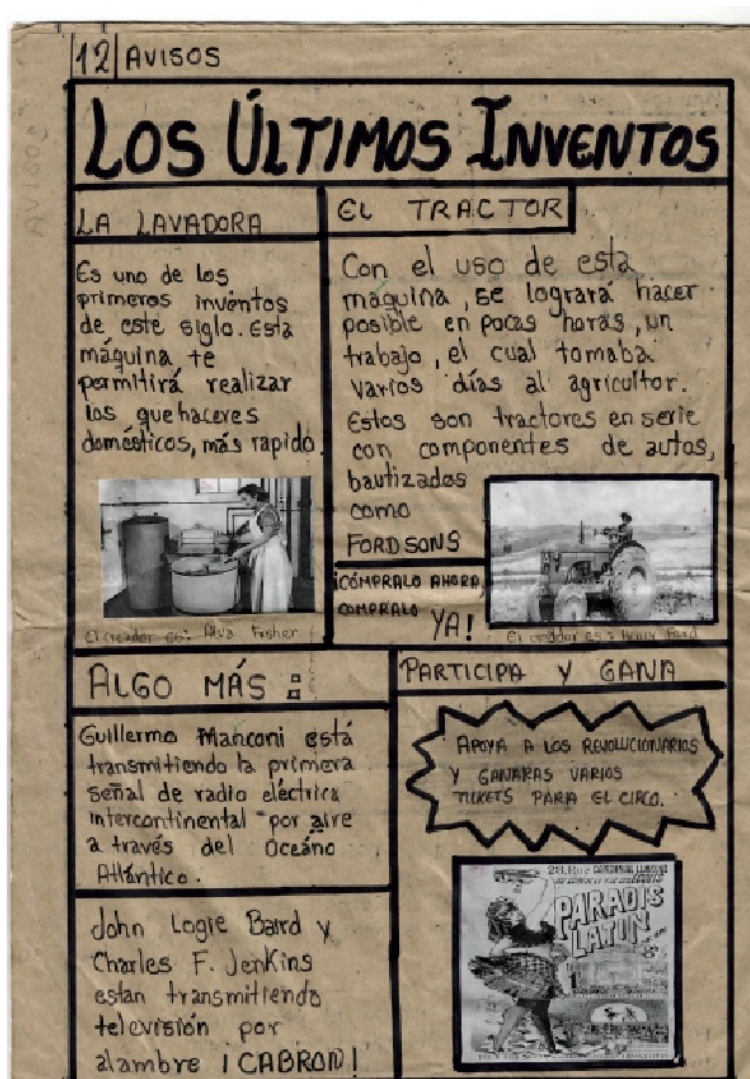 12 AVISOS
LOS ÚLTIMOS INVENTOS
LA LAVADORA
Es uno de los
primeros inventos
de este siglo. Esta
máquina te
permitirá realizar
los quehaceres
domésticos, más rapido.
El creador es: Alva Fisher
EL TRACTOR
Con el uso de esta
maquina, se logrará hacer
posible en pocas horas, un
trabajo, el cual tomaba
varios días al agricultor.
Estos son tractores en serie
con componentes de autos,
bautizados
como
FORDSONS
¡CÓMPRALO AHORA,
COMPRALO YA!
El creador es: Henry Ford
ALGO MÁS:
Guillermo Manconi está
transmitiendo la primera
señal de radio eléctrica
intercontinental por aire
a través del Oceáno
Atlántico.
John Logie Baird y
Charles F. Jenkins
estan transmitiendo
televisión por
alambre ¡CABRON!
PARTICIPA Y GANA
APOYA A LOS REVOLUCIONARIOS
Y GANARAS VARIOS
TICKETS PARA EL CIRCO.
28, Rue CARDINAL LEMOINE
PARADIS
LATIN